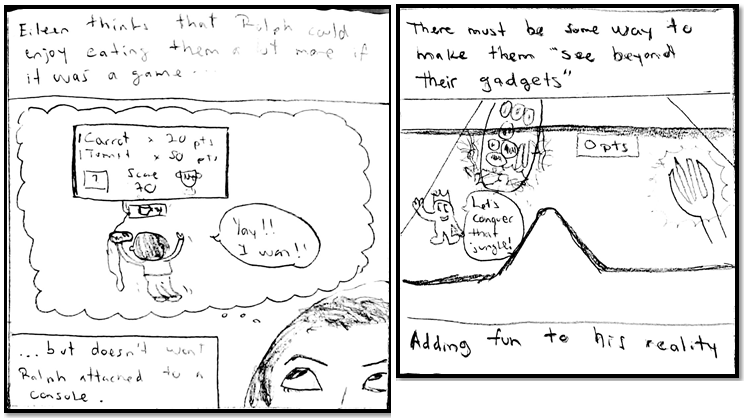 Eileen thinks that Ralph could
enjoy eating them a lot more if
it was a game...
1 Carrot x 20 pts
x 50 pts
Score
70
Yay!!
I won!!
...but doesn't want
Ralph attached to a
console.
There must be some way to
make them "see beyond
their gadgets"
0 pts
Let's
conquer
that
jungle!
Adding fun to his reality